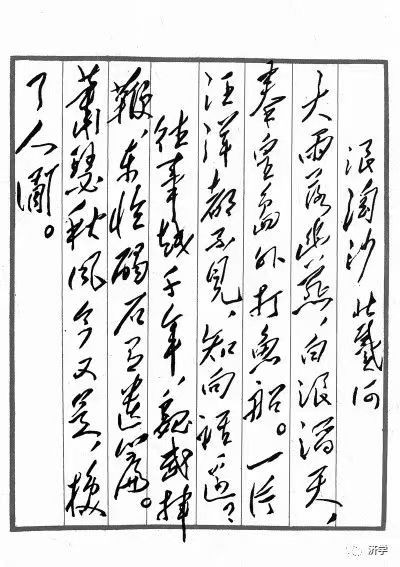 浪淘沙 北戴河
大雨落幽燕，白浪滔天，
秦皇岛外打鱼船。一片
汪洋都不见，知向谁边？
往事越千年，魏武挥
鞭，东临碣石有遗篇。
萧瑟秋风今又是，换
了人间。
济学